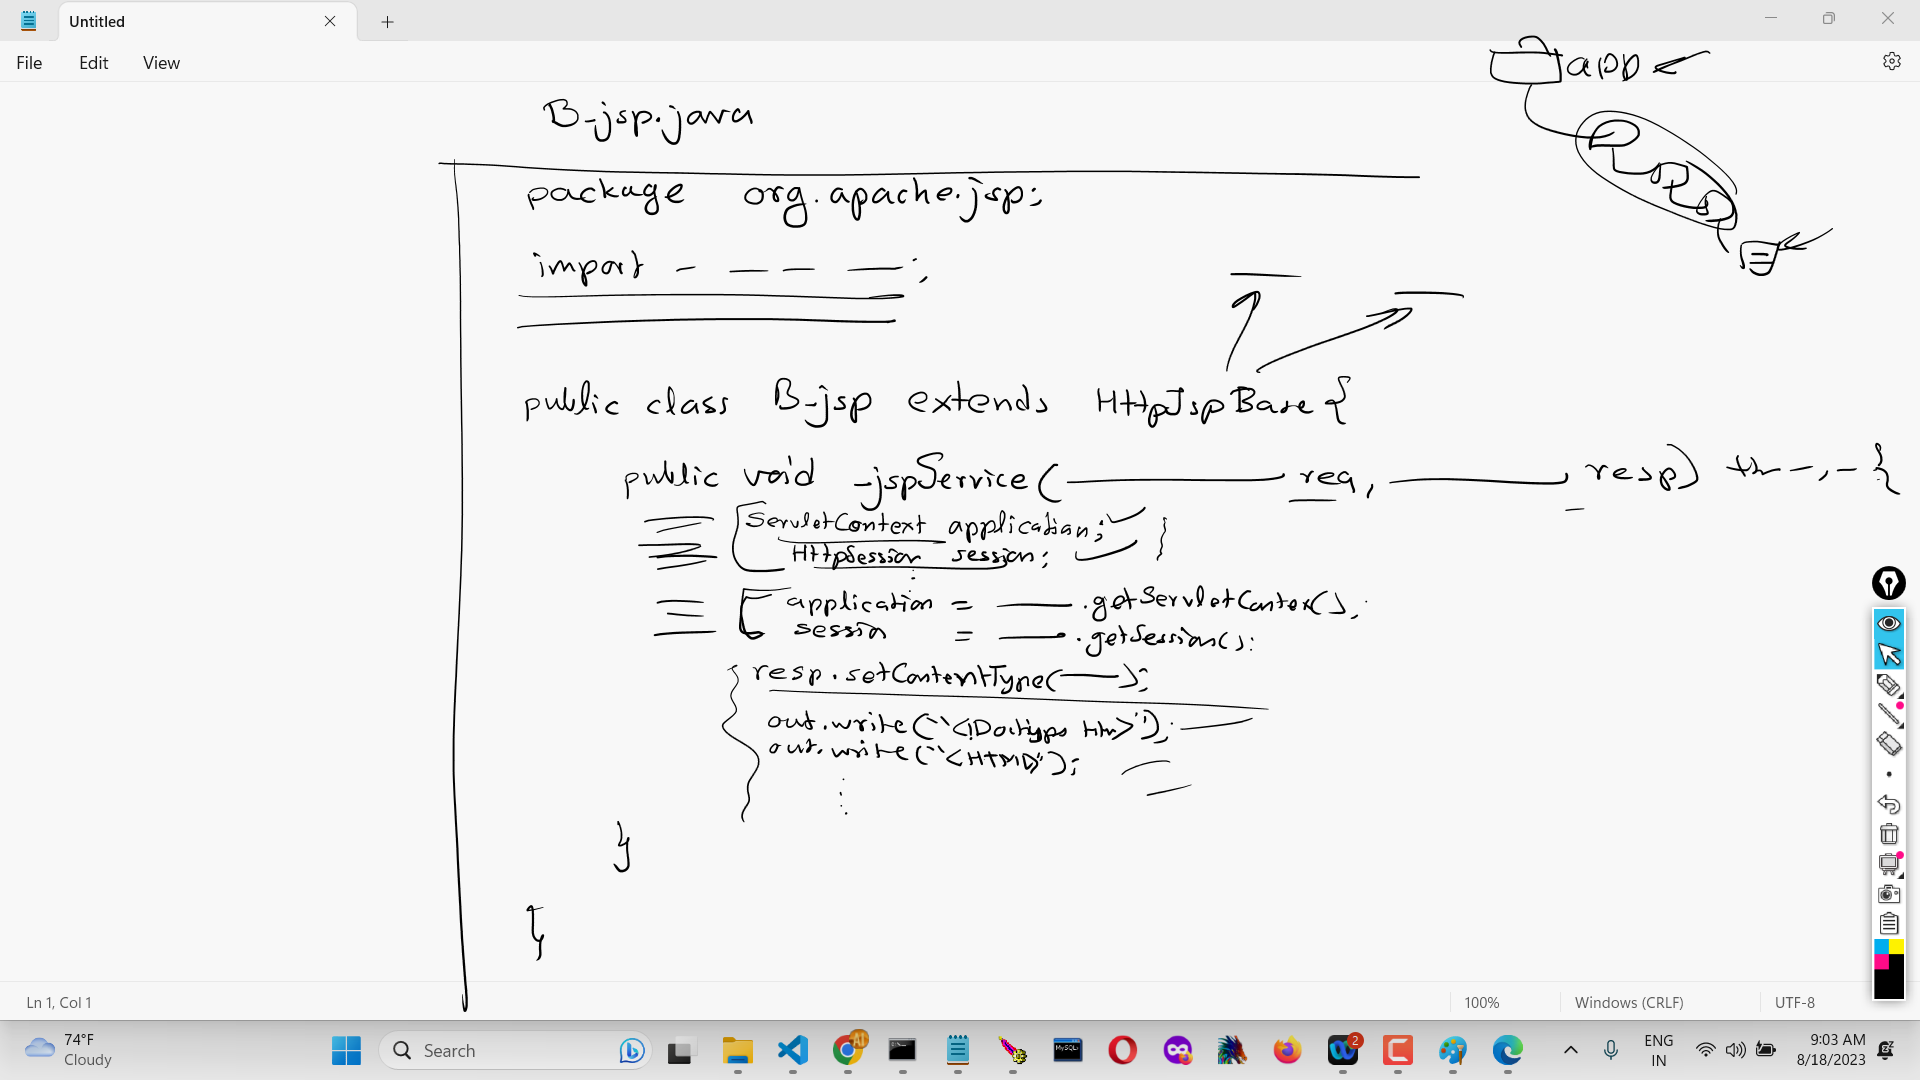 Untitled
File Edit View
app
B_jsp.java
package org.apache.jsp;
import - — — — ;
public class B_jsp extends HttpJspBase {
public void _jspService(——— req, ——— resp) th - , - {
ServletContext application;
HttpSession session;
application = —— .getServletContex();
session = —— .getSession();
resp.setContentType(——);
out.write("<!Doctype Htm>");
out.write("<HTML>");
}
}
Ln 1, Col 1 100% Windows (CRLF) UTF-8
74°F
Cloudy
Search
AI
MySQL
2
ENG
IN
9:03 AM
8/18/2023